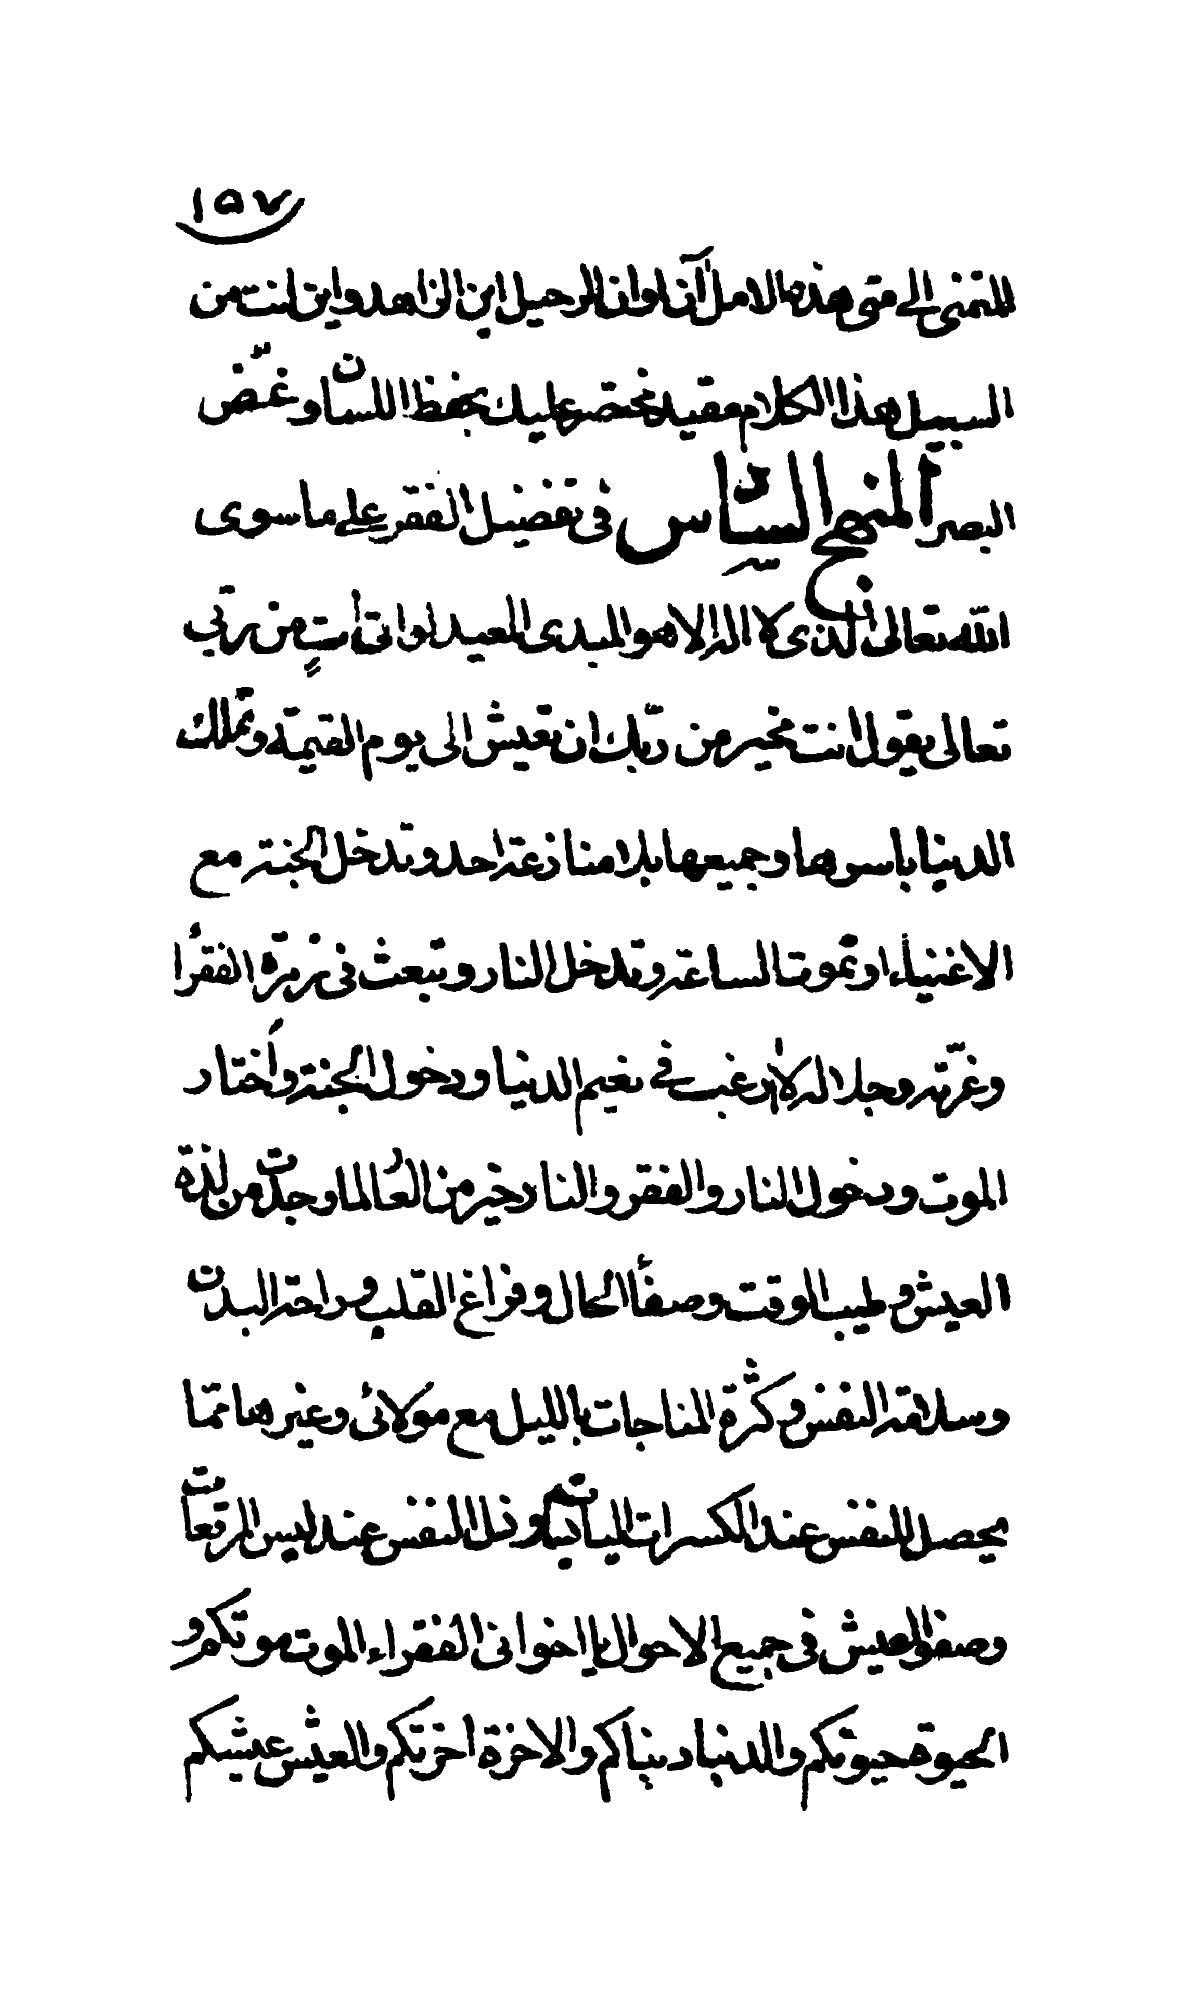 ١٥٧
المتمنى الى متى هذه الامل آن اوان الرحيل اين الزاهد واين انت من
السبيل هذا الكلام مقيد مختصر عليك بحفظ اللسان وغضّ
البصر المنهج السادس فى تفضيل الفقر على ما سوى
الله تعالى الذى لا اله الا هو المبدى المعيد لو اتى اٰتٍ من ربّى
تعالى يقول انت مخير من ربّك ان تعيش الى يوم القيمة وتملك
الدنيا باسرها وجميعها بلا منازعة احد وتدخل الجنة مع
الاغنياء او تموت الساعة وتدخل النار وتبعث فى زمرة الفقرا
وعزّته وجلاله لا ارغب فى نعيم الدنيا ودخول الجنة واختار
الموت ودخول النار والفقر والنار خير من العُالما وجدت من لذة
العيش وطيب الوقت وصفاء الحال وفراغ القلب وراحة البدن
وسلامة النفس وكثرة المناجات بالليل مع مولائى وغيرها ممّا
يحصل للنفس عند الكسرات اليابسات وذل النفس عند لبس المرقعات
وصفو العيش فى جميع الاحوال يا اخوانى الفقراء الموت موتكم و
الحيوة حيوتكم والدنيا دنياكم والاخرة اخرتكم والعيش عيشكم